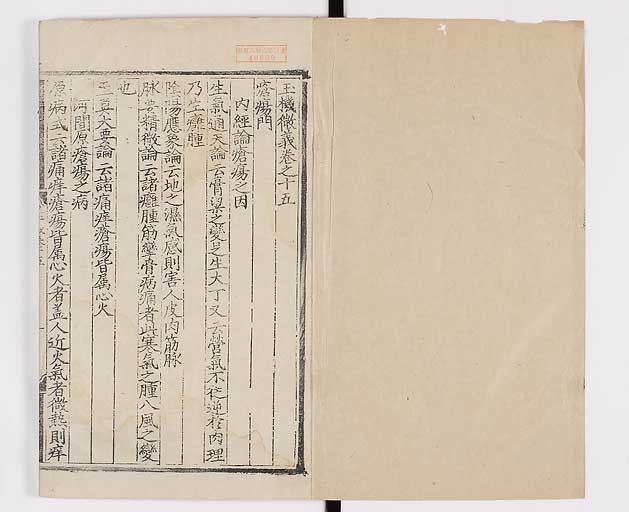 玉機微義卷之十五
瘡瘍門
內經論瘡瘍之因
生氣通天論云膏粱之變足生大丁又云營氣不從逆於肉理
乃生癰腫
陰陽應象論云地之濕氣感則害人皮肉筋脉
脉要精微論云諸癰腫筋攣骨病痛者此寒氣之腫八風之變
也
至真大要論云諸痛痒瘡瘍皆属心火
河間原瘡瘍之病
原病式云諸痛痒瘡瘍皆属心火者盖人近火氣者微熱則痒